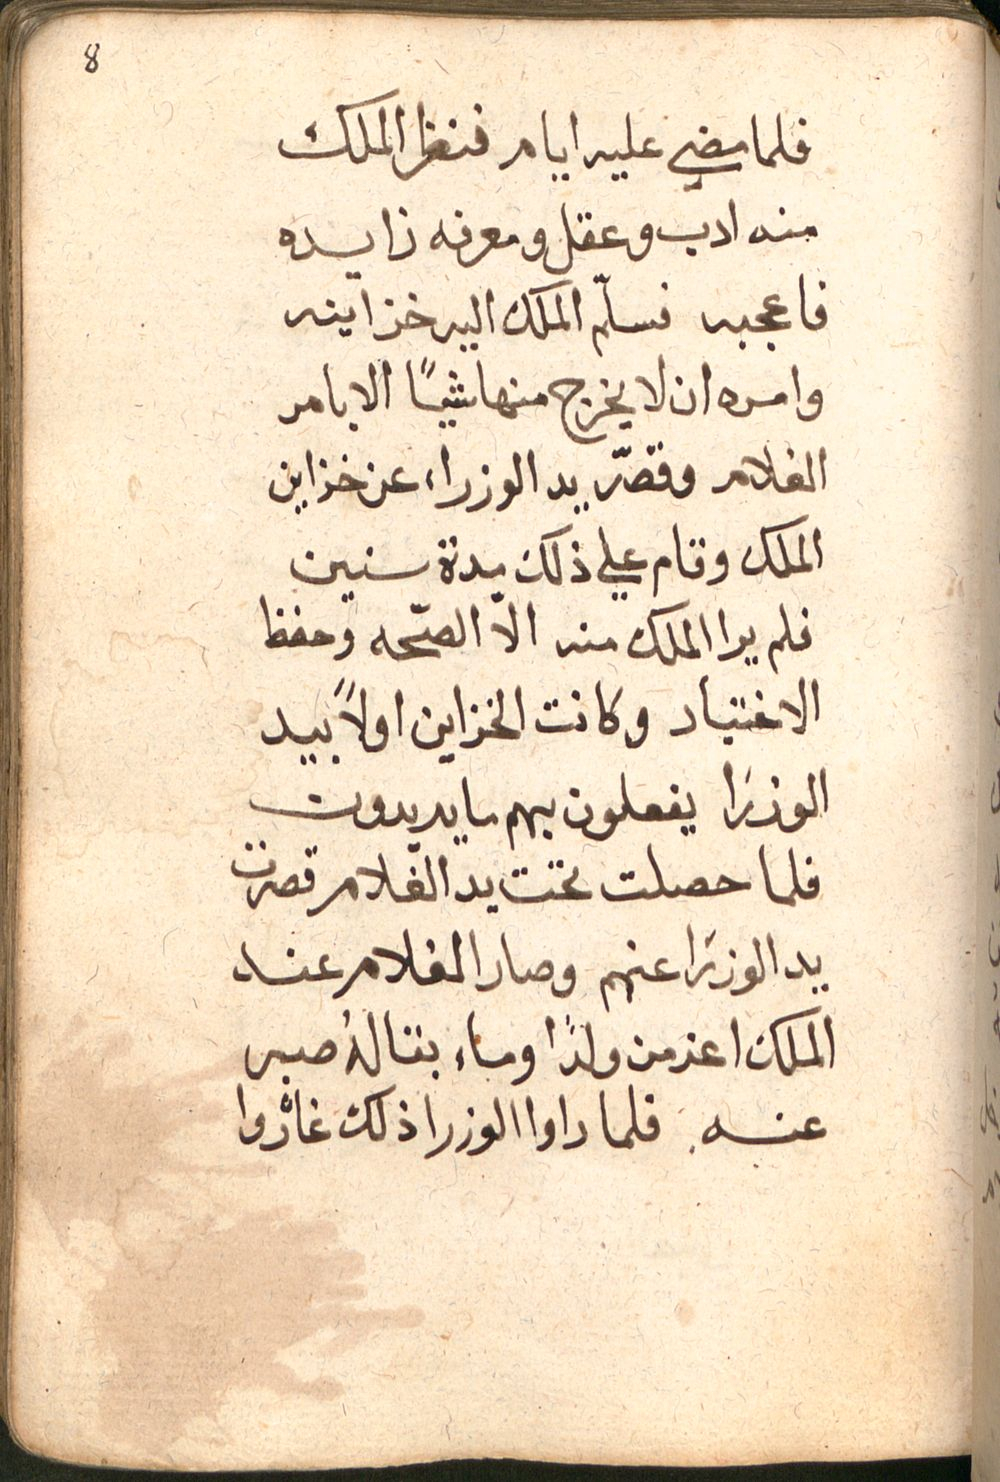 8
فلما مضي عليه ايام فنظر الملك
منه ادب وعقل ومعرفه زايده
فاعجبه فسلّم الملك اليه خزاينه
وامره ان لا يخرج منها شيًا الا بامر
الغلام وقصّر يد الوزراء عن خزاين
الملك وقام علي ذلك مدة سنين
فلم يرا الملك منه الاّ الصّحه وحفظ
الاغتباد وكانت الخزاين اولاً بيد
الوزرَا يفعلون بهم ما يريدون
فلما حصلت تحت يد الغلام قصرت
يد الوزرَا عنهم وصار الغلام عند
الملك اعز من ولدًا وما بقا لهُ صبر
عنه فلما راوا الوزرا ذلك غاروا